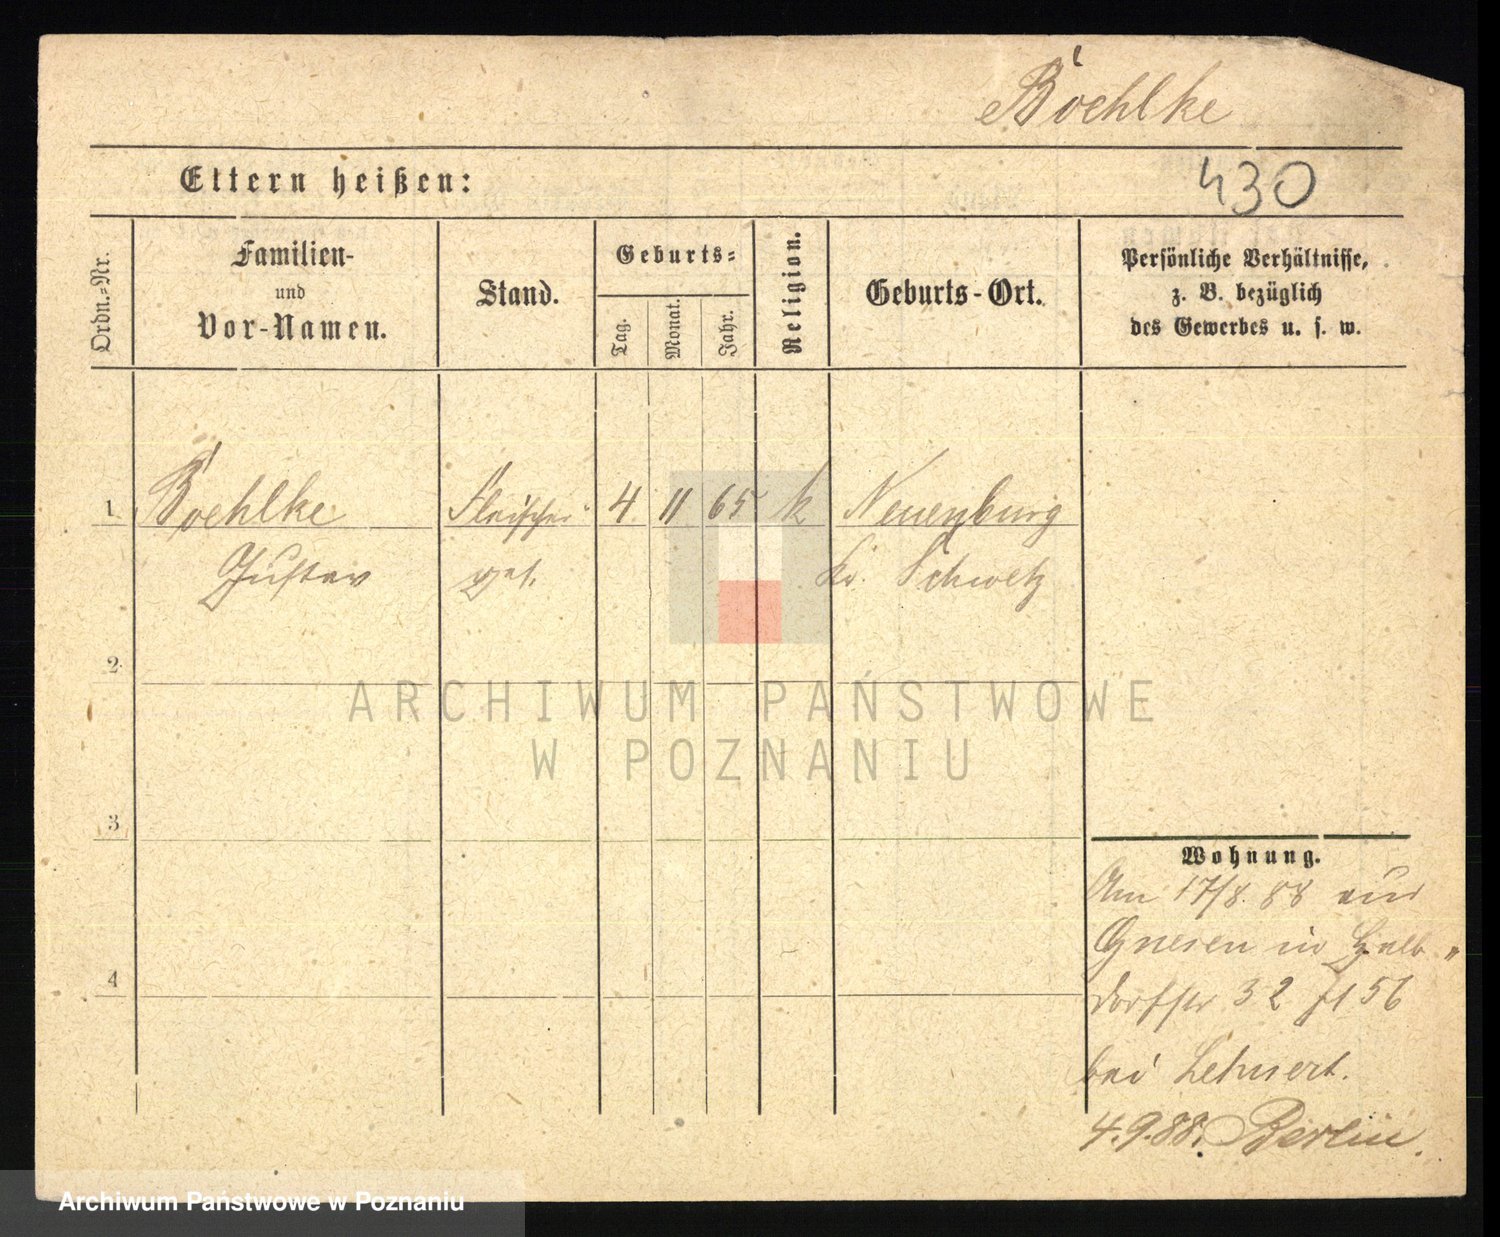 Boehlke
Eltern heißen:
430
Ordn.-Nr.
Familien-
und
Vor-Namen.
Stand.
Geburts-
Tag.
Monat.
Jahr.
Religion.
Geburts-Ort.
Persönliche Verhältnisse,
z. B. bezüglich
des Gewerbes u. s. w.
1. Boehlke Fleischer 4 11 65 k Neuenburg
Gustav ges. Kr. Schwetz
2.
ARCHIWUM PAŃSTWOWE
W POZNANIU
3
Wohnung.
Am 17/8. 88 aus
Gnesen in Halb-
dorfstr 32
4
bei Lehnert.
4.9.88. Berlin.
Archiwum Państwowe w Poznaniu